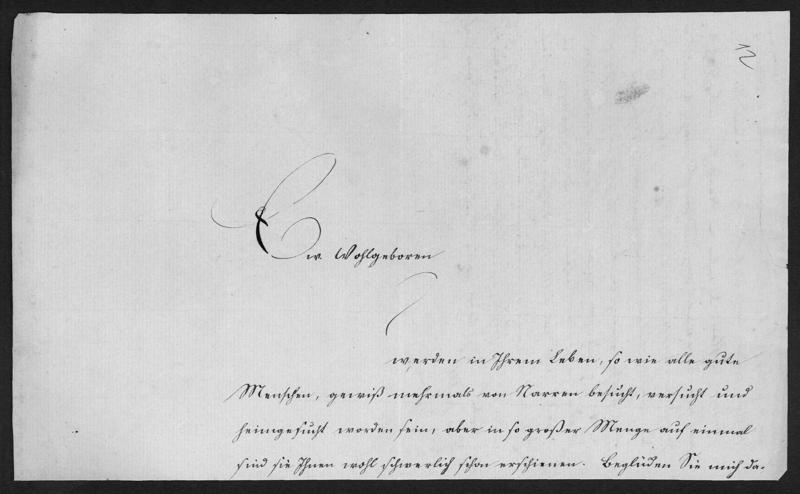 12
Ew. Wohlgeboren
werden in Ihrem Leben, so wie alle gute
Menschen, gewiß mehrmals von Narren besucht, versucht und
heimgesucht worden sein, aber in so großer Menge auf einmal
sind sie Ihnen wohl schwerlich schon erschienen. Beglücken Sie mich da-